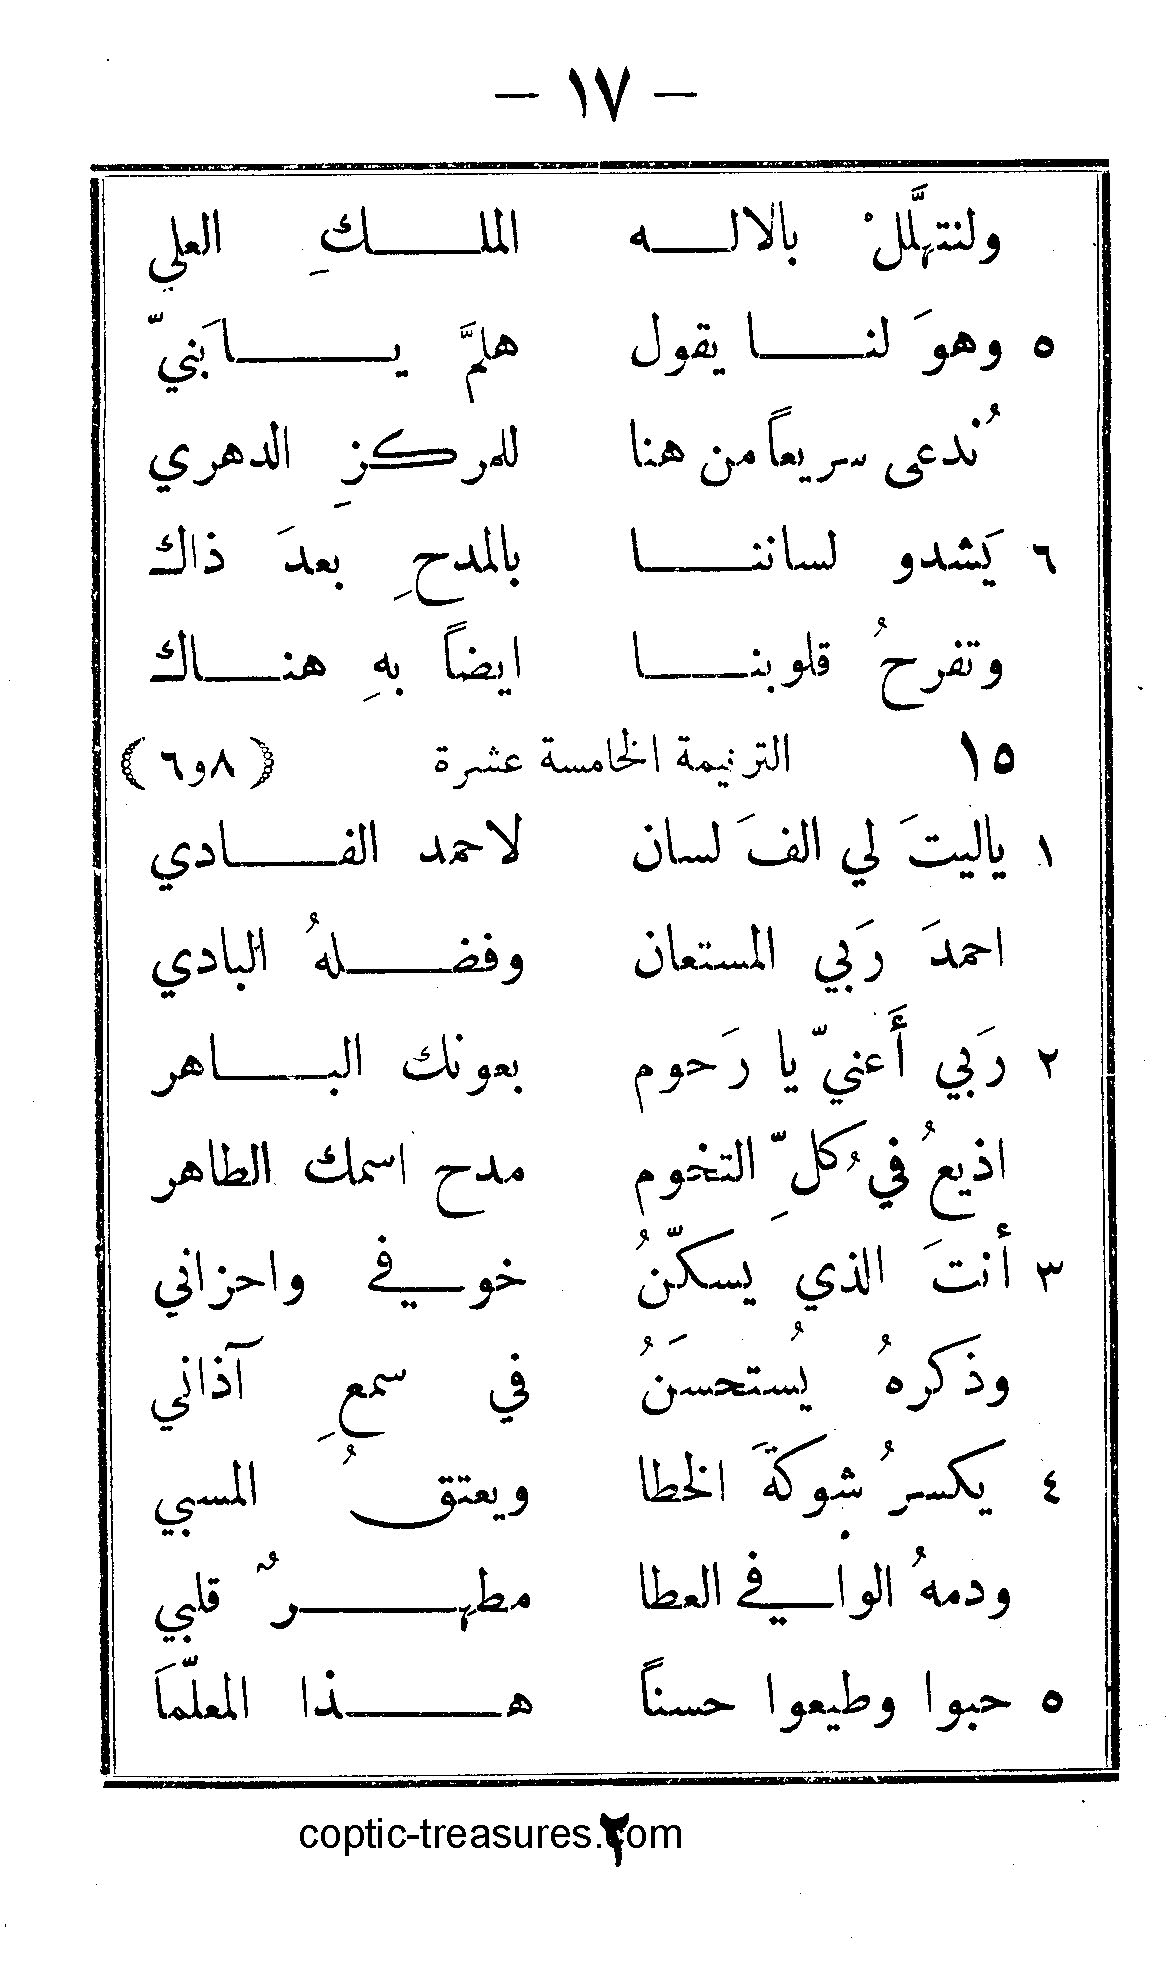 — ١٧ —
ولنتهلَّلْ بالاله الملكِ العلي
٥ وهوَ لنا يقول هلمَّ يا بَنيّ
نُدعى سريعاً من هنا للمركزِ الدهري
٦ يَشدو لساننا بالمدحِ بعدَ ذاك
وتفرحُ قلوبنا ايضاً بهِ هناك
١٥ الترنيمة الخامسة عشرة (٨و٦)
١ ياليتَ لي الفَ لسان لاحمد الفادي
احمدَ رَبي المستعان وفضلهُ البادي
٢ رَبي أَعنيّ يا رَحوم بعونك الباهر
اذيعُ في كُلِّ التخوم مدح اسمك الطاهر
٣ أنتَ الذي يسكّنُ خوفي واحزاني
وذكرهُ يُستحسَنُ في سمعِ آذاني
٤ يكسرُ شوكةَ الخطا ويعتقُ المسبي
ودمهُ الوافي العطا مطهرٌ قلبي
٥ حبوا وطيعوا حسناً هذا المعلّمَا
coptic-treasures.com
٢